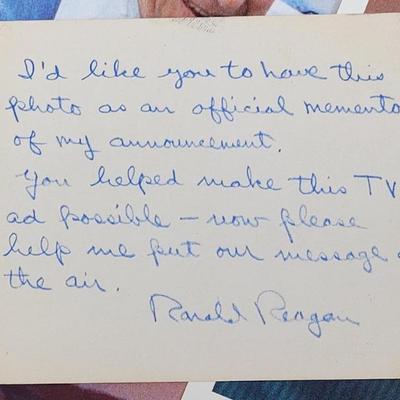 I'd like you to have this
photo as an official memento
of my announcement.
You helped make this TV
ad possible — now please
help me put our message
the air.
Ronald Reagan